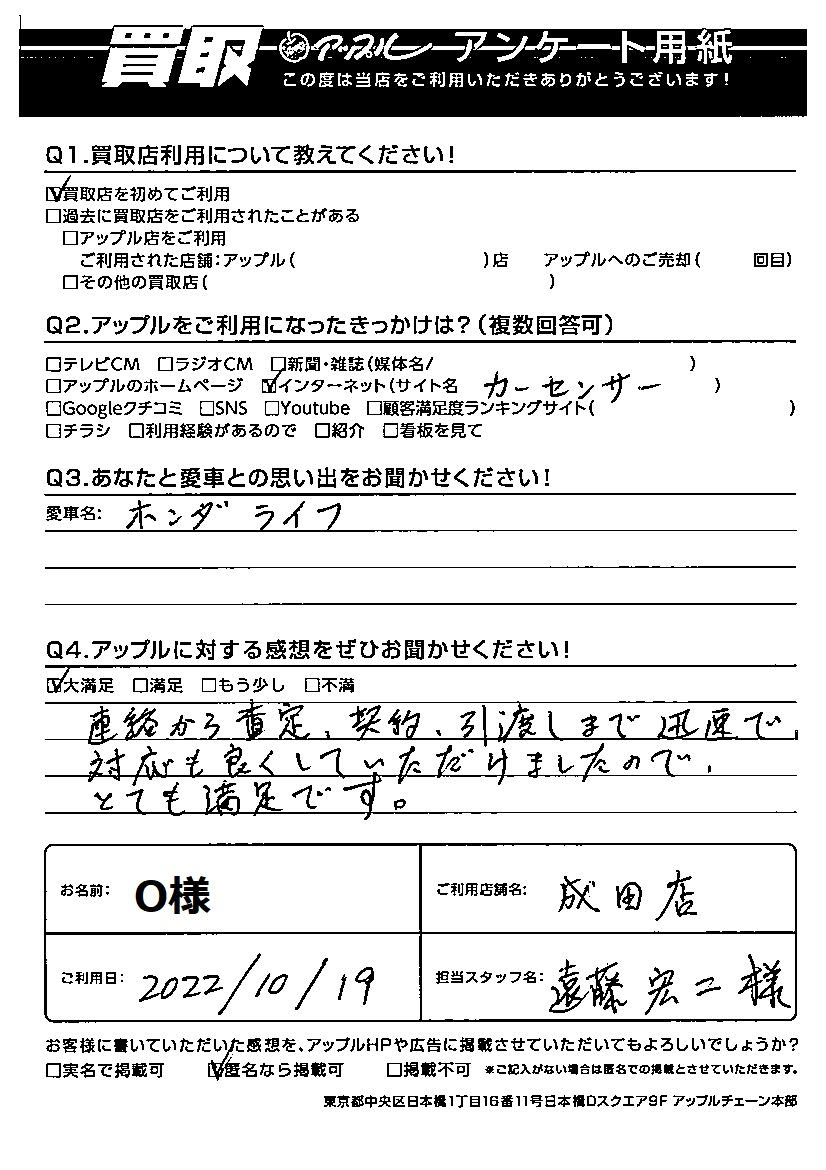 買取 アップル アンケート用紙
この度は当店をご利用いただきありがとうございます!
Q1.買取店利用について教えてください!
☑買取店を初めてご利用
□過去に買取店をご利用されたことがある
□アップル店をご利用
ご利用された店舗:アップル( )店 アップルへのご売却( 回目)
□その他の買取店( )
Q2.アップルをご利用になったきっかけは?(複数回答可)
□テレビCM □ラジオCM □新聞・雑誌(媒体名/ )
□アップルのホームページ ☑インターネット(サイト名 カーセンサー )
□Googleクチコミ □SNS □Youtube □顧客満足度ランキングサイト( )
□チラシ □利用経験があるので □紹介 □看板を見て
Q3.あなたと愛車との思い出をお聞かせください!
愛車名: ホンダ ライフ
Q4.アップルに対する感想をぜひお聞かせください!
☑大満足 □満足 □もう少し □不満
連絡から査定、契約、引渡しまで迅速で、
対応も良くしていただけましたので、
とても満足です。
お名前: O様 ご利用店舗名: 成田店
ご利用日: 2022/10/19 担当スタッフ名: 遠藤 宏二 様
お客様に書いていただいた感想を、アップルHPや広告に掲載させていただいてもよろしいでしょうか?
□実名で掲載可 ☑匿名なら掲載可 □掲載不可 ※ご記入がない場合は匿名での掲載とさせていただきます。
東京都中央区日本橋1丁目16番11号日本橋Dスクエア9F アップルチェーン本部